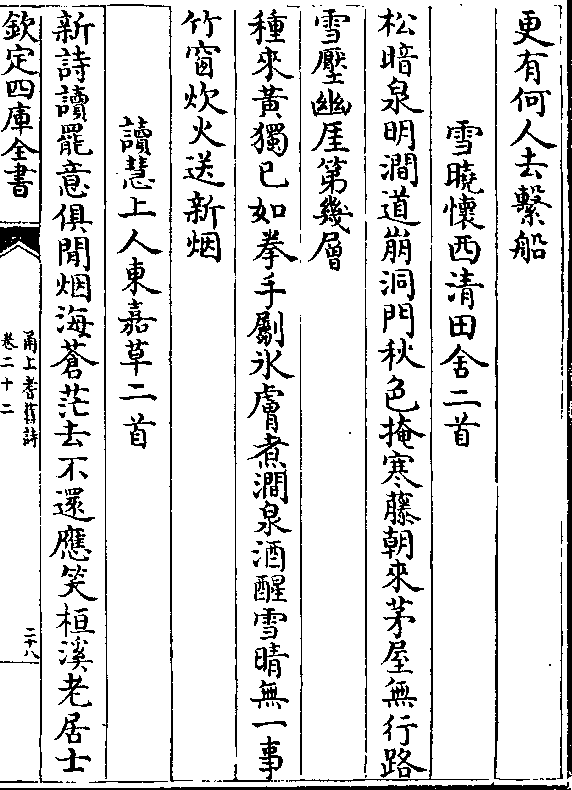 更有何人去繫船
雪曉懷西清田舍二首
松暗泉明澗道崩洞門秋色掩寒藤朝來茅屋無行路
雪壓幽厓第幾層
種來黃獨已如拳手劚氷膚煮澗泉酒醒雪晴無一事
竹窗炊火送新烟
讀慧上人東嘉草二首
新詩讀罷意俱閒烟海蒼茫去不還應笑桓溪老居士
欽定四庫全書
甬上耆舊詩
卷二十二
二十八